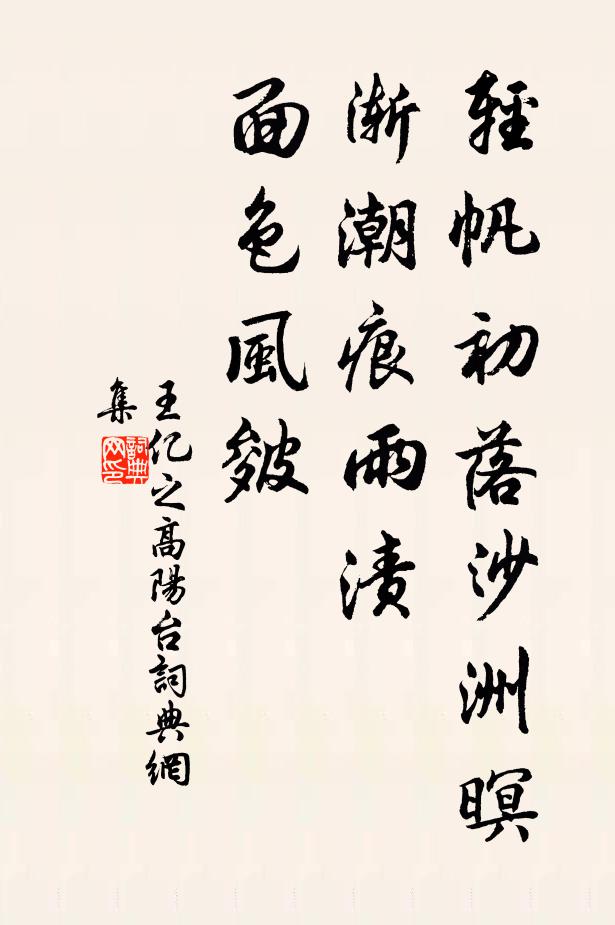 輕帆初落沙洲暝
漸潮痕雨漬
面色風皴
王亿之高陽台詞典網
集
詞典
网印